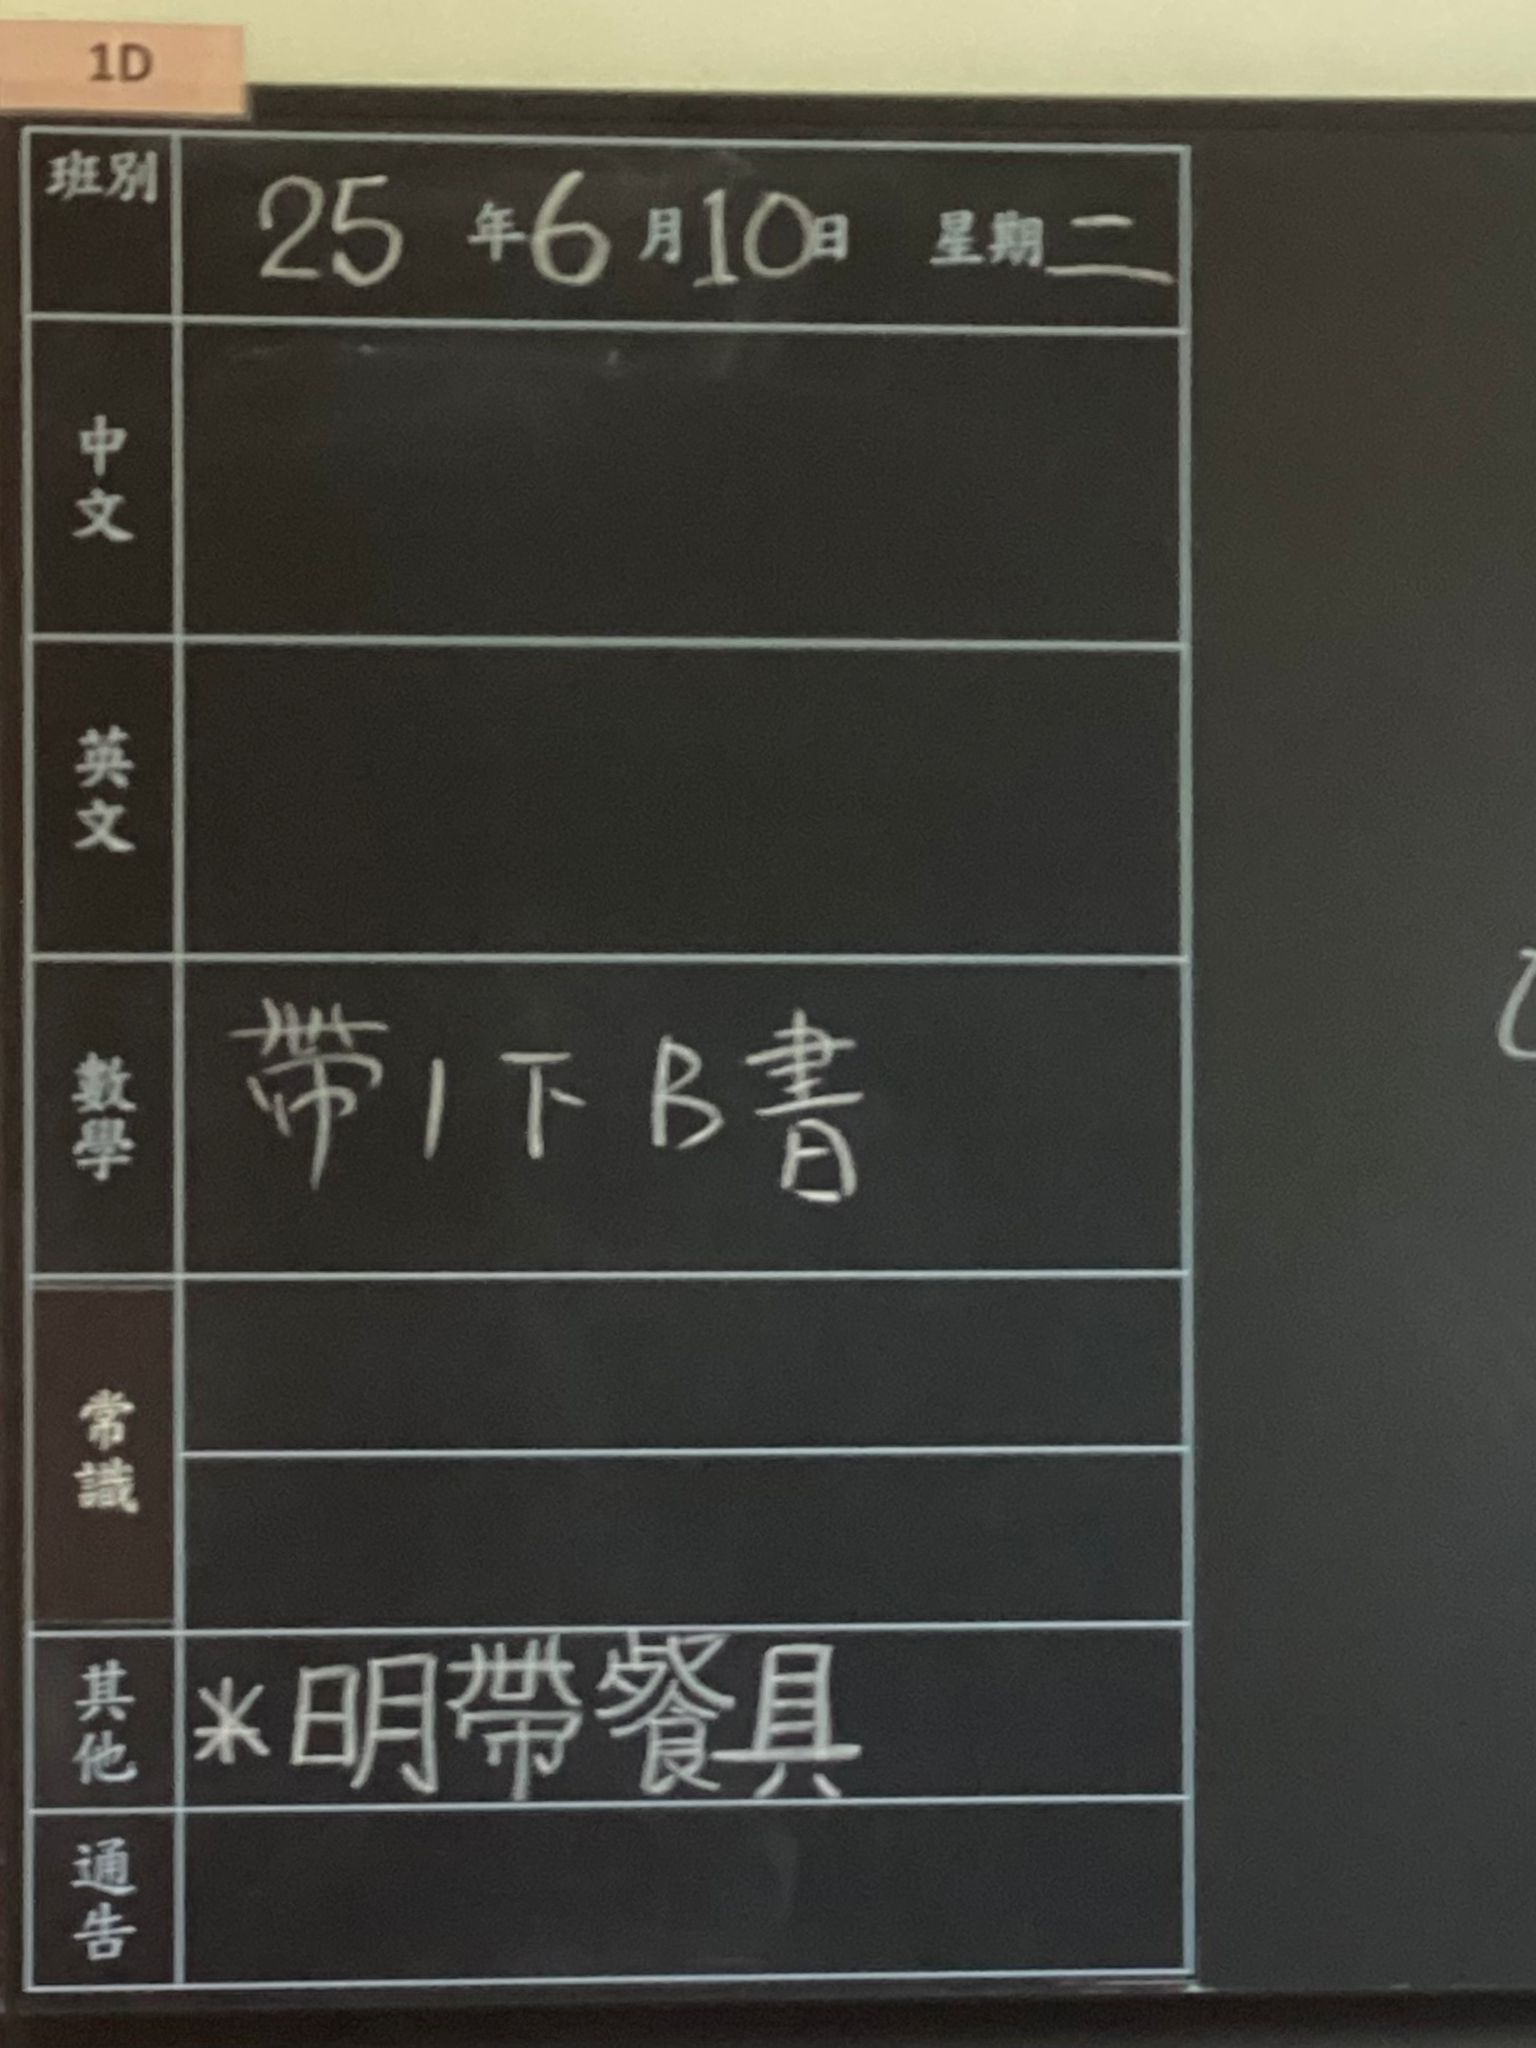 1D
班別
25年6月10日 星期二
中文
英文
數學
帶1下B書
常識
其他
*明帶餐具
通告